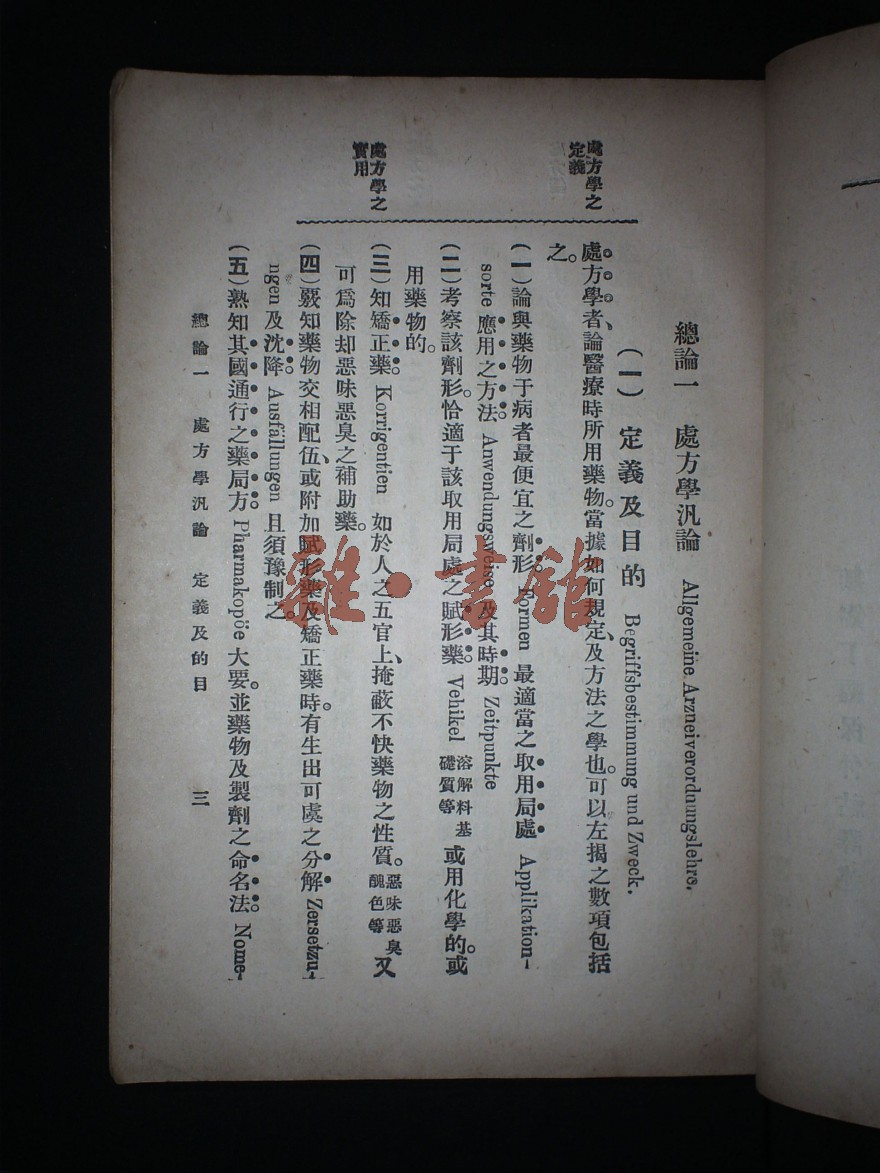 總論一 處方學汎論 Allgemeine Arzneiverordnungslehre.
(一) 定義及目的 Begriffsbestimmung und Zweck.
處方學之
定義
處方學者、論醫療時所用藥物。當據如何規定、及方法之學也。可以左揭之數項包括
之。
(一)論與藥物于病者最便宜之劑形 Formen 最適當之取用局處 Applikation-
sorte 應用之方法 Anwendungsweise 及其時期 Zeitpunkte
(二)考察該劑形。恰適于該取用局處之賦形藥 Vehikel 溶解料基礎質等 或用化學的。或
用藥物的。
處方學之
實用
(三)知矯正藥 Korrigentien 如於人之五官上、掩蔽不快藥物之性質。惡味惡臭醜色等 又
可爲除却惡味惡臭之補助藥。
(四)覈知藥物交相配伍、或附加賦形藥及矯正藥時。有生出可虞之分解 Zersetzu-
ngen 及沈降 Ausfällungen 且須豫制之。
(五)熟知其國通行之藥局方 Pharmakopöe 大要。並藥物及製劑之命名法。Nome-
總論一 處方學汎論 定義及的目 三
雜·書館